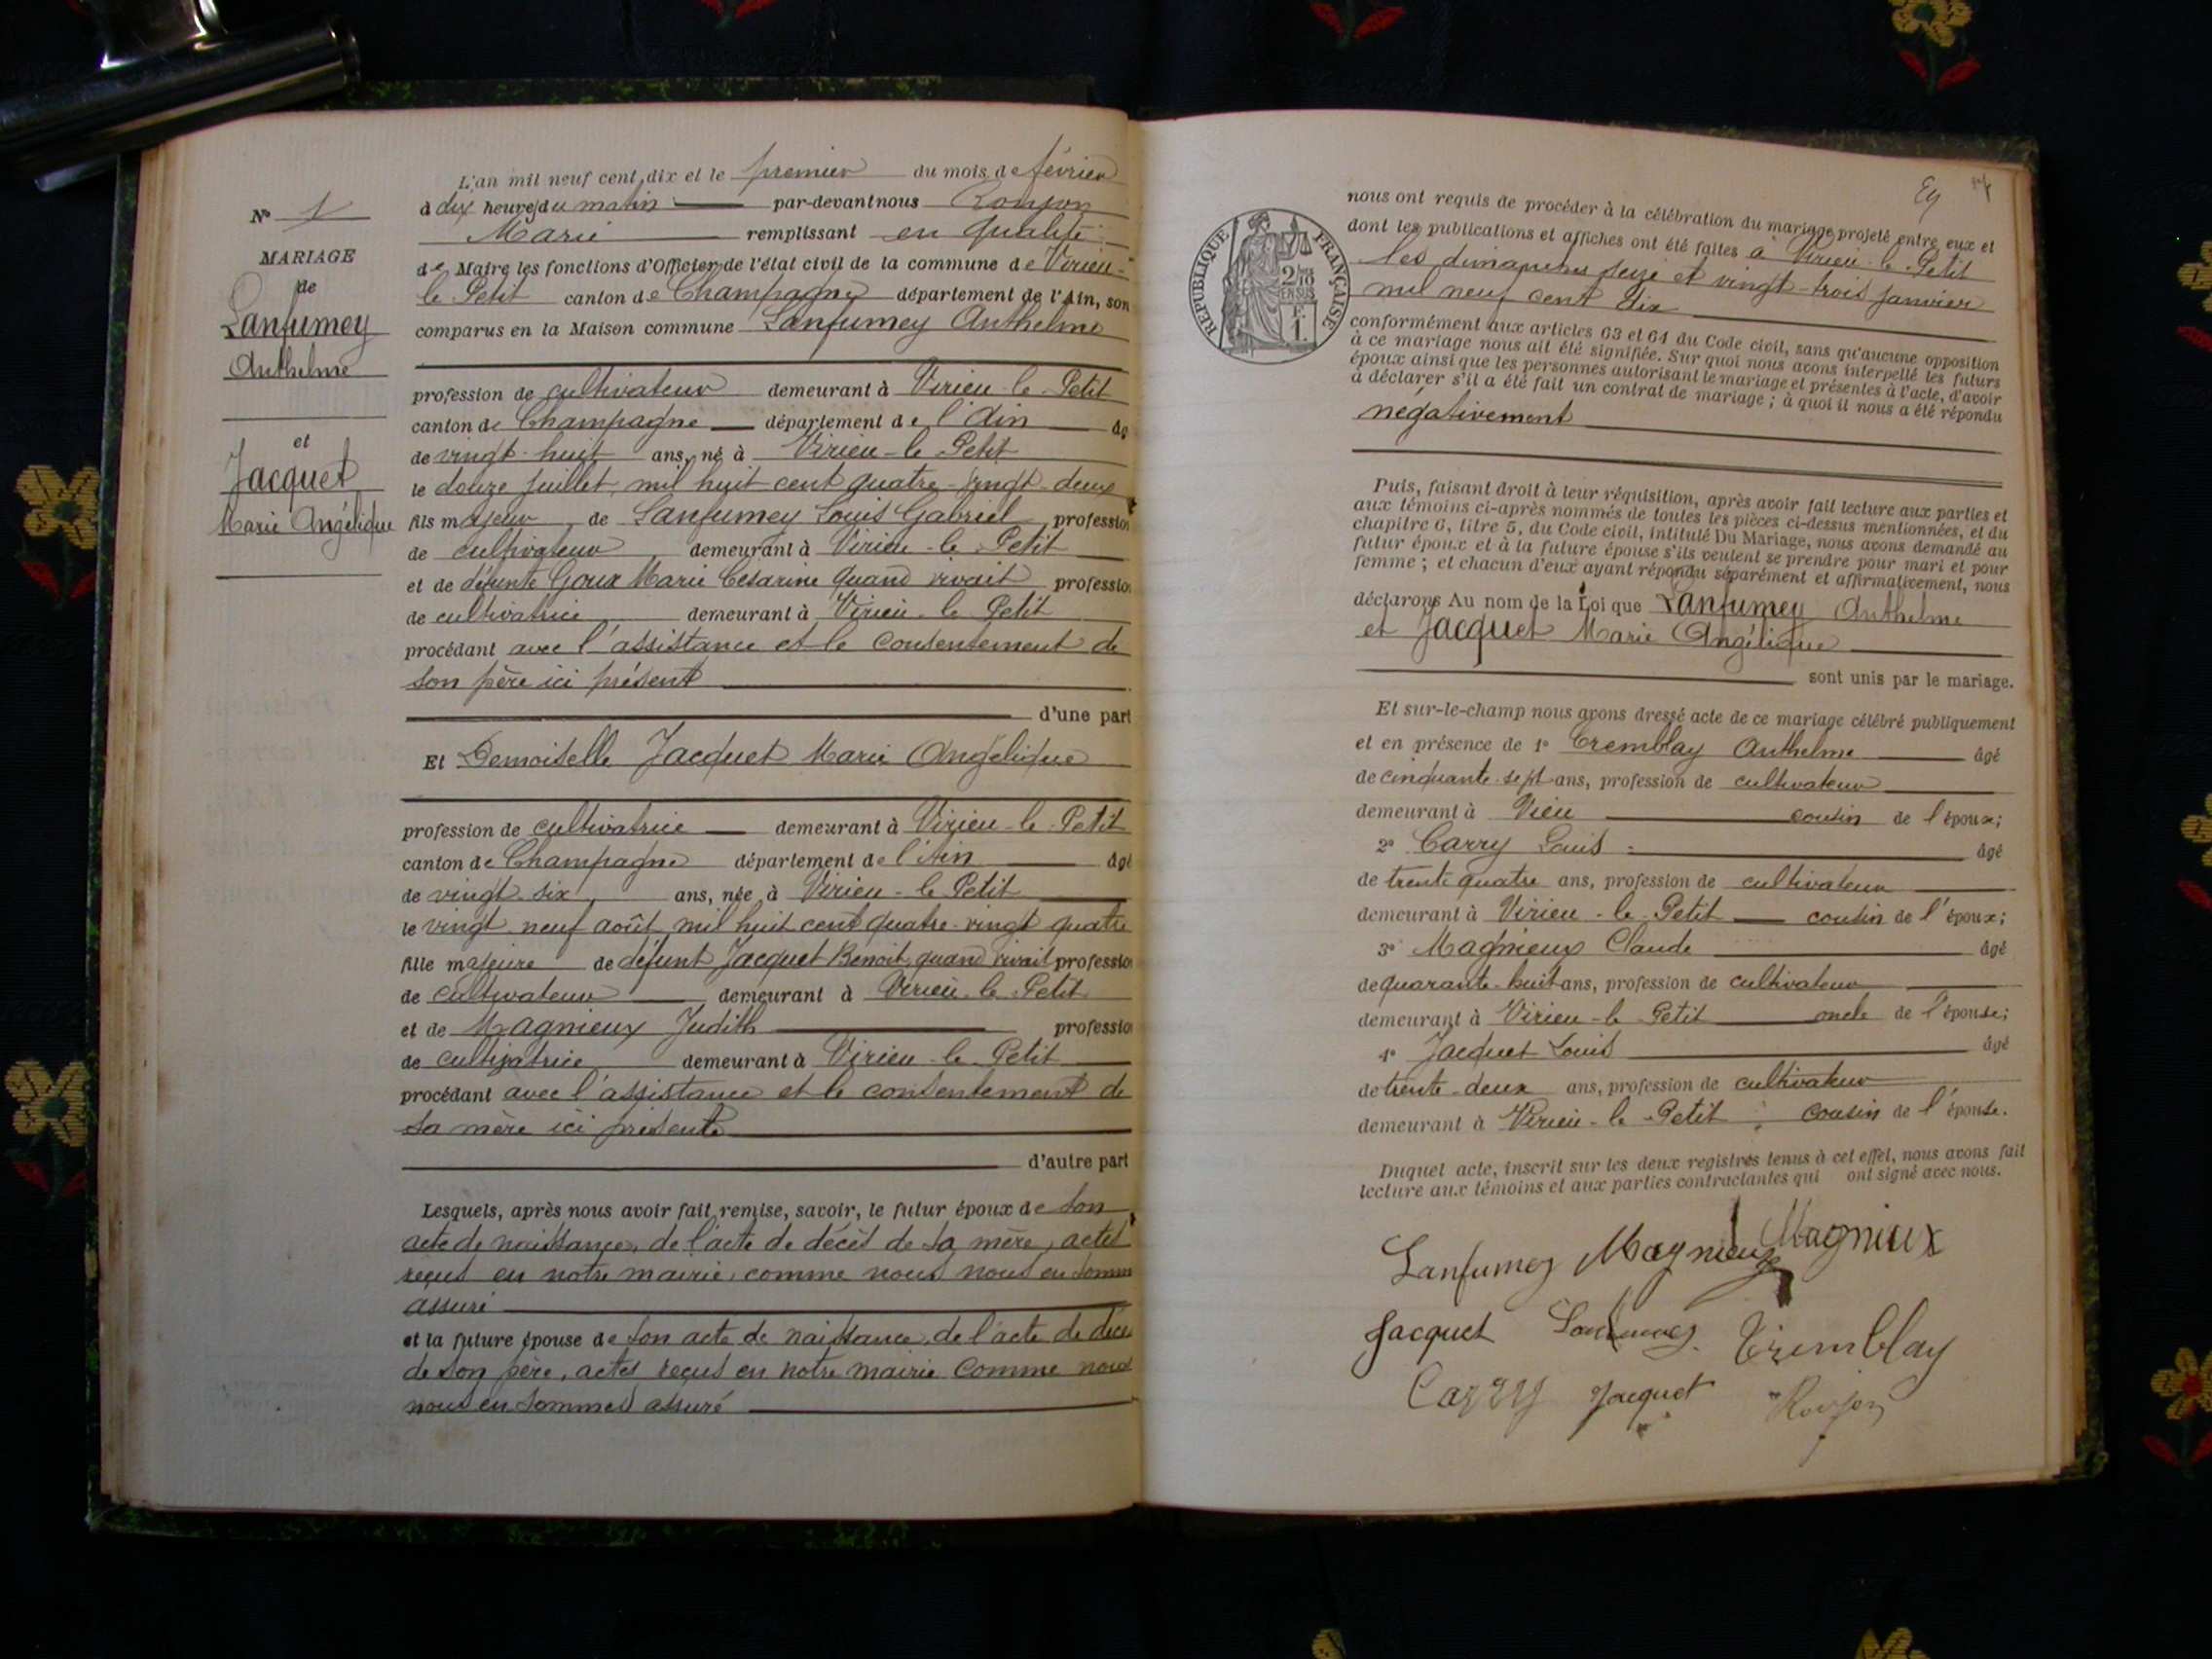 N° 1
MARIAGE
de
Lanfumey
Anthelme
et
Jacquet
Marie Angélique
L'an mil neuf cent dix et le premier du mois de février
à dix heure du matin par-devant nous Roujon
Marie remplissant en qualité
de Maire les fonctions d'Officier de l'état civil de la commune de Virieu-
le Petit canton de Champagne département de l'Ain, son
comparus en la Maison commune Lanfumey Anthelme
profession de cultivateur demeurant à Virieu-le-Petit
canton de Champagne département de l'Ain âg
de vingt-huit ans, né à Virieu-le-Petit
le douze juillet mil huit cent quatre-vingt-deux
fils majeur de Lanfumey Louis Gabriel profession
de cultivateur demeurant à Virieu-le-Petit
et de défunte Goux Marie Césarine quand vivait professio
de cultivatrice demeurant à Virieu-le-Petit
procédant avec l'assistance et le consentement de
son père ici présent
d'une part
Et Demoiselle Jacquet Marie Angélique
profession de cultivatrice demeurant à Virieu-le-Petit
canton de Champagne département de l'Ain âgé
de vingt-six ans, née à Virieu-le-Petit
le vingt-neuf août mil huit cent quatre-vingt quatre
fille majeure de défunt Jacquet Benoit, quand vivait professio
de cultivateur demeurant à Virieu-le-Petit
et de Magnieux Judith professio
de cultivatrice demeurant à Virieu-le-Petit
procédant avec l'assistance et le consentement de
sa mère ici présente
d'autre part
Lesquels, après nous avoir fait remise, savoir, le futur époux de son
acte de naissance, de l'acte de décès de sa mère, actes
reçus en notre mairie, comme nous nous en somm
assuré
et la future épouse de son acte de naissance, de l'acte de décè
de son père, actes reçus en notre mairie comme nous
nous en sommes assuré
RÉPUBLIQUE FRANÇAISE
2/10
EN SUS
F.
1.
nous ont requis de procéder à la célébration du mariage projeté entre eux et
dont les publications et affiches ont été faites à Virieu-le-Petit
les dimanches seize et vingt-trois janvier
mil neuf cent dix
conformément aux articles 63 et 64 du Code civil, sans qu'aucune opposition
à ce mariage nous ait été signifiée. Sur quoi nous avons interpellé les futurs
époux ainsi que les personnes autorisant le mariage et présentes à l'acte, d'avoir
à déclarer s'il a été fait un contrat de mariage ; à quoi il nous a été répondu
négativement
Puis, faisant droit à leur réquisition, après avoir fait lecture aux parties et
aux témoins ci-après nommés de toutes les pièces ci-dessus mentionnées, et du
chapitre 6, titre 5, du Code civil, intitulé Du Mariage, nous avons demandé au
futur époux et à la future épouse s'ils veulent se prendre pour mari et pour
femme ; et chacun d'eux ayant répondu séparément et affirmativement, nous
déclarons Au nom de la Loi que Lanfumey Anthelme
et Jacquet Marie Angélique
sont unis par le mariage.
Et sur-le-champ nous avons dressé acte de ce mariage célébré publiquement
et en présence de 1° Tremblay Anthelme âgé
de cinquante-sept ans, profession de cultivateur
demeurant à Vieu cousin de l'époux;
2° Carry Louis âgé
de trente quatre ans, profession de cultivateur
demeurant à Virieu-le-Petit cousin de l'époux;
3° Magnieux Claude âgé
de quarante-huit ans, profession de cultivateur
demeurant à Virieu-le-Petit oncle de l'épouse;
4° Jacquet Louis âgé
de trente-deux ans, profession de cultivateur
demeurant à Virieu-le-Petit cousin de l'épouse.
Duquel acte, inscrit sur les deux registres tenus à cet effet, nous avons fait
lecture aux témoins et aux parties contractantes qui ont signé avec nous.
Lanfumey Magnieux Magnieux
Jacquet Lanfumey Tremblay
Carry Jacquet Roujon